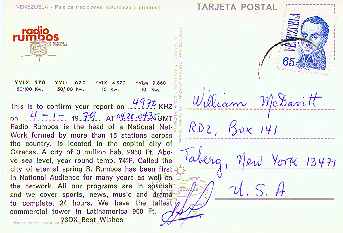 VENEZUELA
TARJETA POSTAL
radio
rumbos
VENEZUELA
65
This is to confirm your report on 4970 KHZ
on 4-1- 19 At GMT
Radio Rumbos is the head of a National Net-
Work formed by more than 15 stations across
the country. Is located in the capital city of
Caracas. A city of 3 million hab. 2950 Ft. Abo-
ve sea level, year round temp. 74°F. Called the
city of eternal spring R. Rumbos has been first
in National Audience for many years as well as
the network. All our programs are in spanish
and we cover sports, news, music and drama
to complete. 24 hours. We have the tallest
commercial tower in Latinamerica 900 Ft.
73DX Best Wishes
William McDavitt
RD2, Box 141
Taberg, New York 13471
U.S.A